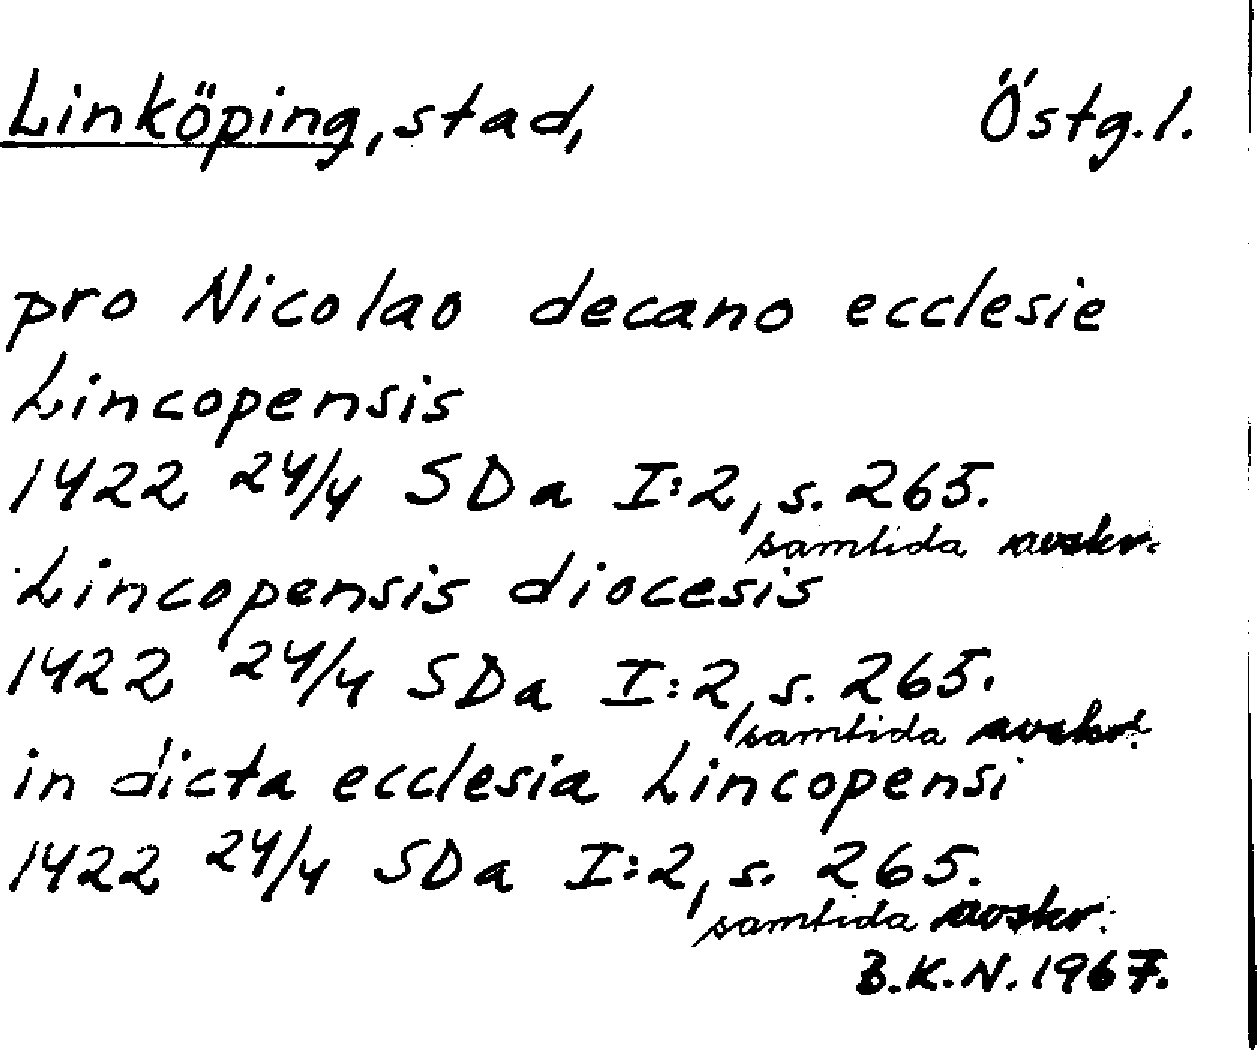 Linköping, stad, Östg.l.
pro Nicolao decano ecclesie
Lincopensis
1422 24/4 SDa I:2, s. 265.
samtida avskr.
Lincopensis diocesis
1422 24/4 SDa I:2, s. 265.
samtida avskr.
in dicta ecclesia Lincopensi
1422 24/4 SDa I:2, s. 265.
samtida avskr.
B.K.N. 1967.